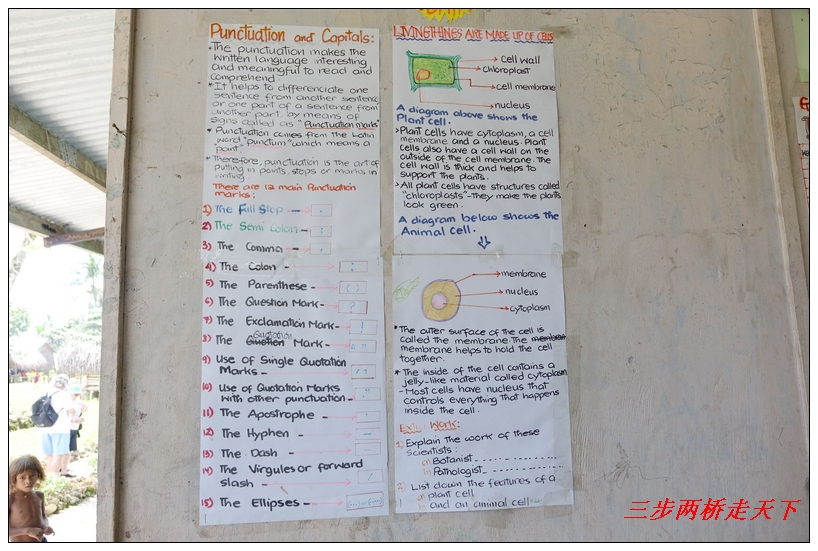 Punctuation and Capitals:
* The punctuation makes the
written language interesting
and meaningful to read and
comprehend
* It helps to differenciate one
sentence from another sentence
or one part of a sentence from
another part, by means of
signs called as "Punctuation marks"
* Punctuation comes from the Latin
word "punctum" which means a
point"
* Therefore, punctuation is the art of
putting in points, stops or marks in
writing
There are 12 main Punctuation
marks:
1) The Full Stop - .
2) The Semi Colon - ;
3) The Comma - ,
4) The Colon - :
5) The Parenthese - ( )
6) The Question Mark - ?
7) The Exclamation Mark - !
Quotation
8) The Mark - " "
9) Use of Single Quotation
Marks - ' '
10) Use of Quotation Marks
with other punctuation - " "
11) The Apostrophe - '
12) The Hyphen -
13) The Dash -
14) The Virgules or forward
slash - /
15) The Ellipses -
LIVING THINGS ARE MADE UP OF CELLS
cell wall
chloroplast
cell membrane
nucleus
A diagram above shows the
Plant cell.
> Plant cells have cytoplasm, a cell
membrane and a nucleus. Plant
cells also have a cell wall on the
outside of the cell membrane. The
cell wall is thick and helps to
support the plants.
> All plant cells have structures called
"chloroplasts" - they make the plants
look green.
A diagram below shows the
Animal cell.
membrane
nucleus
cytoplasm
* The outer surface of the cell is
called the membrane. The
membrane helps to hold the cell
together.
* The inside of the cell contains a
jelly-like material called cytoplasm
- Most cells have nucleus that
controls everything that happens
inside the cell.
Work:
1) Explain the work of these
Scientists:
a) Botanist
b) Pathologist
2. List down the features of a
a) plant cell
b) and an animal cell
三步两桥走天下